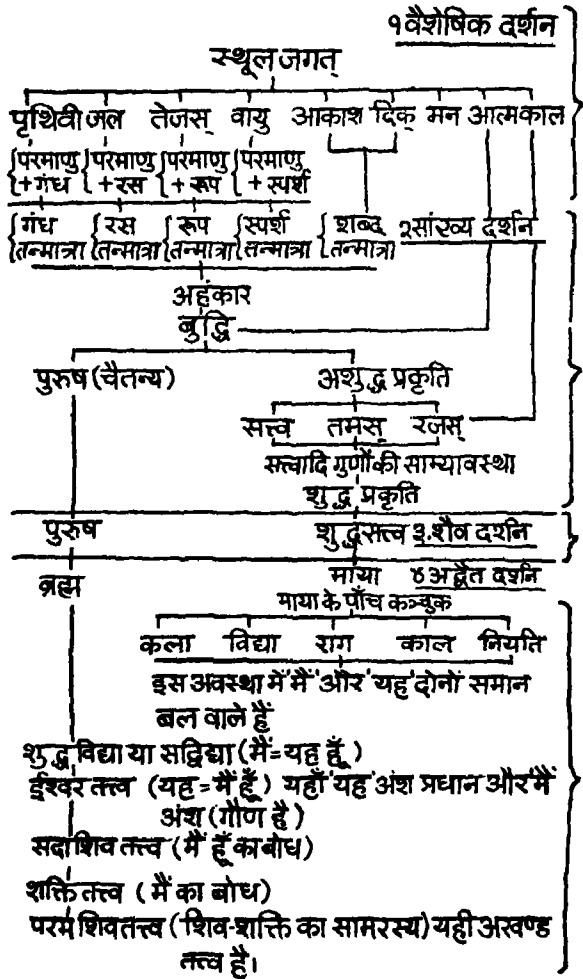 १ वैशेषिक दर्शन
स्थूल जगत्
पृथिवी जल तेजस् वायु आकाश दिक् मन आत्म काल
परमाणु परमाणु परमाणु परमाणु
+गंध +रस +रूप +स्पर्श
गंध रस रूप स्पर्श शब्द २सांख्य दर्शन
तन्मात्रा तन्मात्रा तन्मात्रा तन्मात्रा तन्मात्रा
अहंकार
बुद्धि
पुरुष (चैतन्य) अशुद्ध प्रकृति
सत्त्व तमस् रजस्
सत्त्वादि गुणों की साम्यावस्था
शुद्ध प्रकृति
पुरुष शुद्धसत्त्व ३.शैव दर्शन
ब्रह्म माया ४अद्वैत दर्शन
माया के पाँच कञ्चुक
कला विद्या राग काल नियति
इस अवस्था में 'मैं' और 'यह' दोनों समान
बल वाले हैं
शुद्ध विद्या या सद्विद्या (मैं=यह हूँ)
ईश्वर तत्त्व (यह=मैं हूँ) यहाँ 'यह' अंश प्रधान और 'मैं'
अंश (गौण है)
सदाशिव तत्त्व (मैं हूँ का बोध)
शक्ति तत्त्व (मैं का बोध)
परम शिवतत्त्व (शिव-शक्ति का सामरस्य) यही अखण्ड
तत्त्व है।